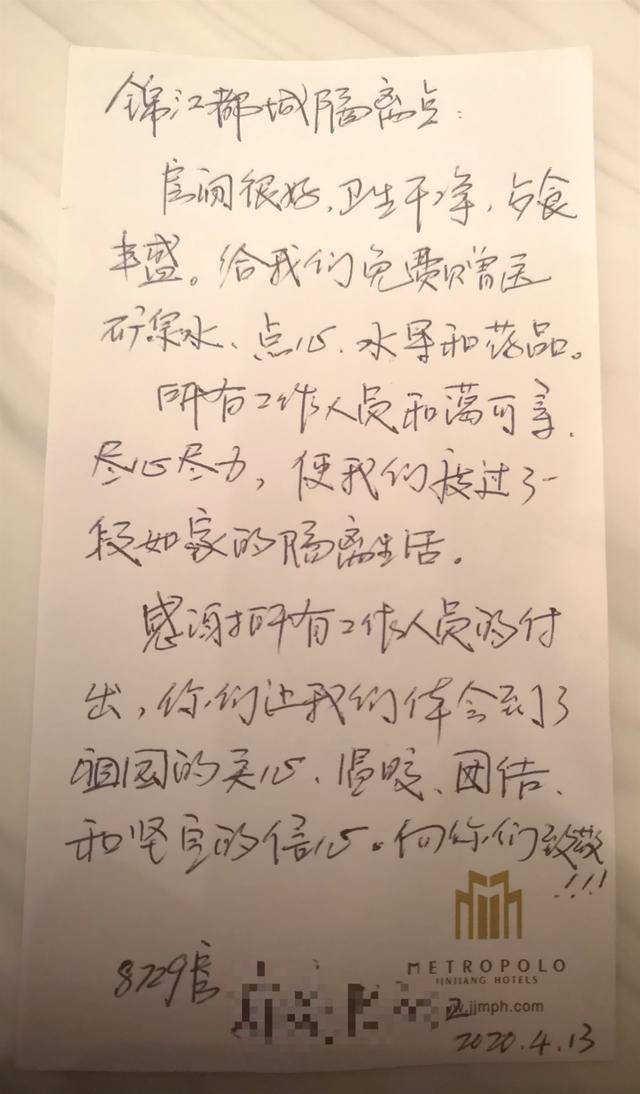 锦江都城隔离点：
房间很好，卫生干净，伙食
丰盛。给我们免费赠送
矿泉水、点心、水果和药品。
所有工作人员和蔼可亲，
尽心尽力，使我们度过了一
段如家的隔离生活。
感谢所有工作人员的付
出，你们让我们体会到了
祖国的关心、温暖、团结、
和坚定的信心。向你们致敬
!!!
METROPOLO
JINJIANG HOTELS
8729房
.jjmph.com
2020.4.13